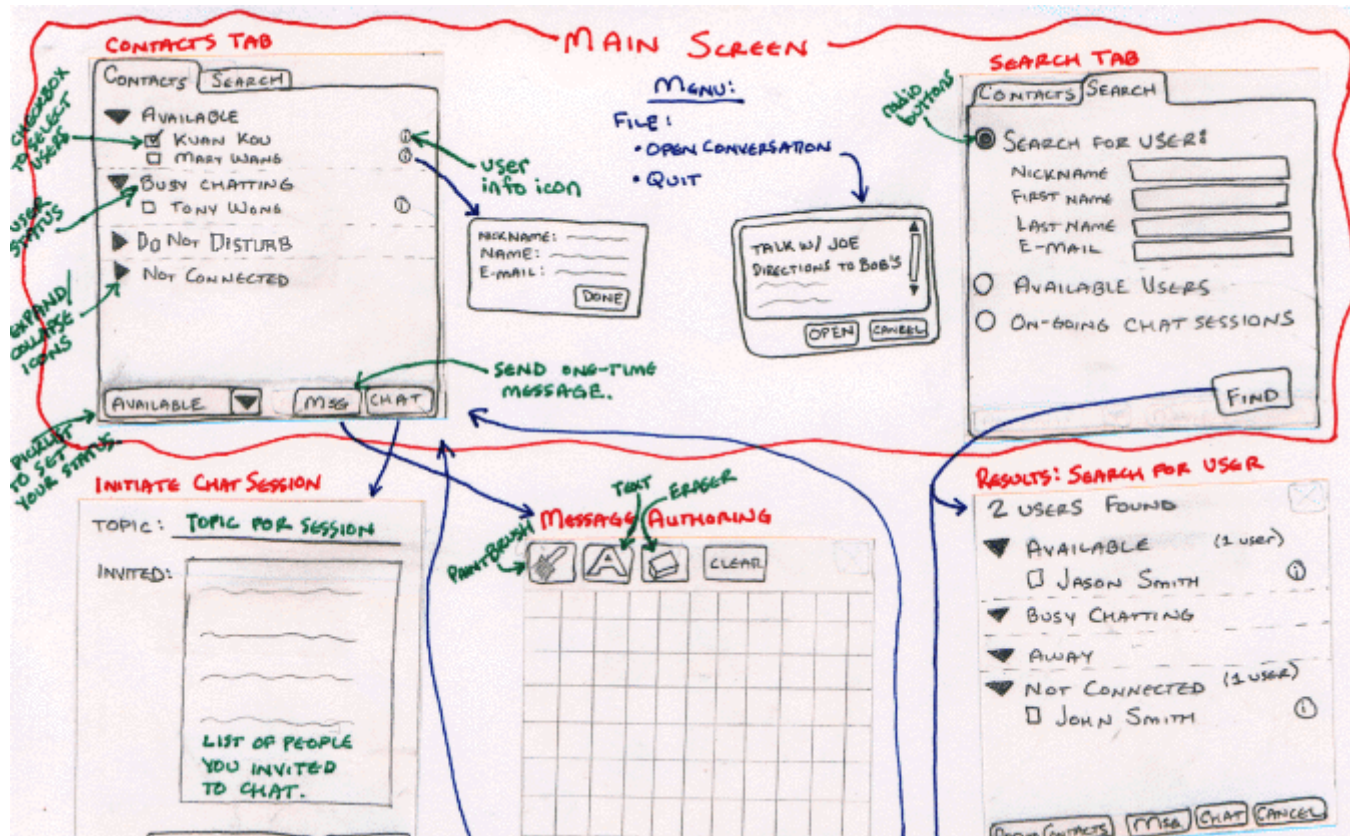 MAIN SCREEN
CONTACTS TAB
CONTACTS SEARCH
AVAILABLE
KUAN KOU
MARY WANG
BUSY CHATTING
TONY WONG
DO NOT DISTURB
NOT CONNECTED
AVAILABLE MSG CHAT
CHECKBOX
TO SELECT
USERS
USER
STATUS
EXPAND/
COLLAPSE
ICONS
PICKLIST
TO SET
YOUR STATUS.
user
info icon
SEND ONE-TIME
MESSAGE.
MENU:
FILE:
• OPEN CONVERSATION
• QUIT
NICKNAME:
NAME:
E-MAIL:
DONE
TALK W/ JOE
DIRECTIONS TO BOB'S
OPEN CANCEL
SEARCH TAB
radio
buttons
CONTACTS SEARCH
SEARCH FOR USER:
NICKNAME
FIRST NAME
LAST NAME
E-MAIL
AVAILABLE USERS
ON-GOING CHAT SESSIONS
FIND
INITIATE CHAT SESSION
TOPIC: TOPIC FOR SESSION
INVITED:
LIST OF PEOPLE
YOU INVITED
TO CHAT.
MESSAGE AUTHORING
PAINTBRUSH
TEXT
ERASER
A
CLEAR
RESULTS: SEARCH FOR USER
2 USERS FOUND
AVAILABLE (1 user)
JASON SMITH
BUSY CHATTING
AWAY
NOT CONNECTED (1 USER)
JOHN SMITH
CONTACTS MSG CHAT CANCEL